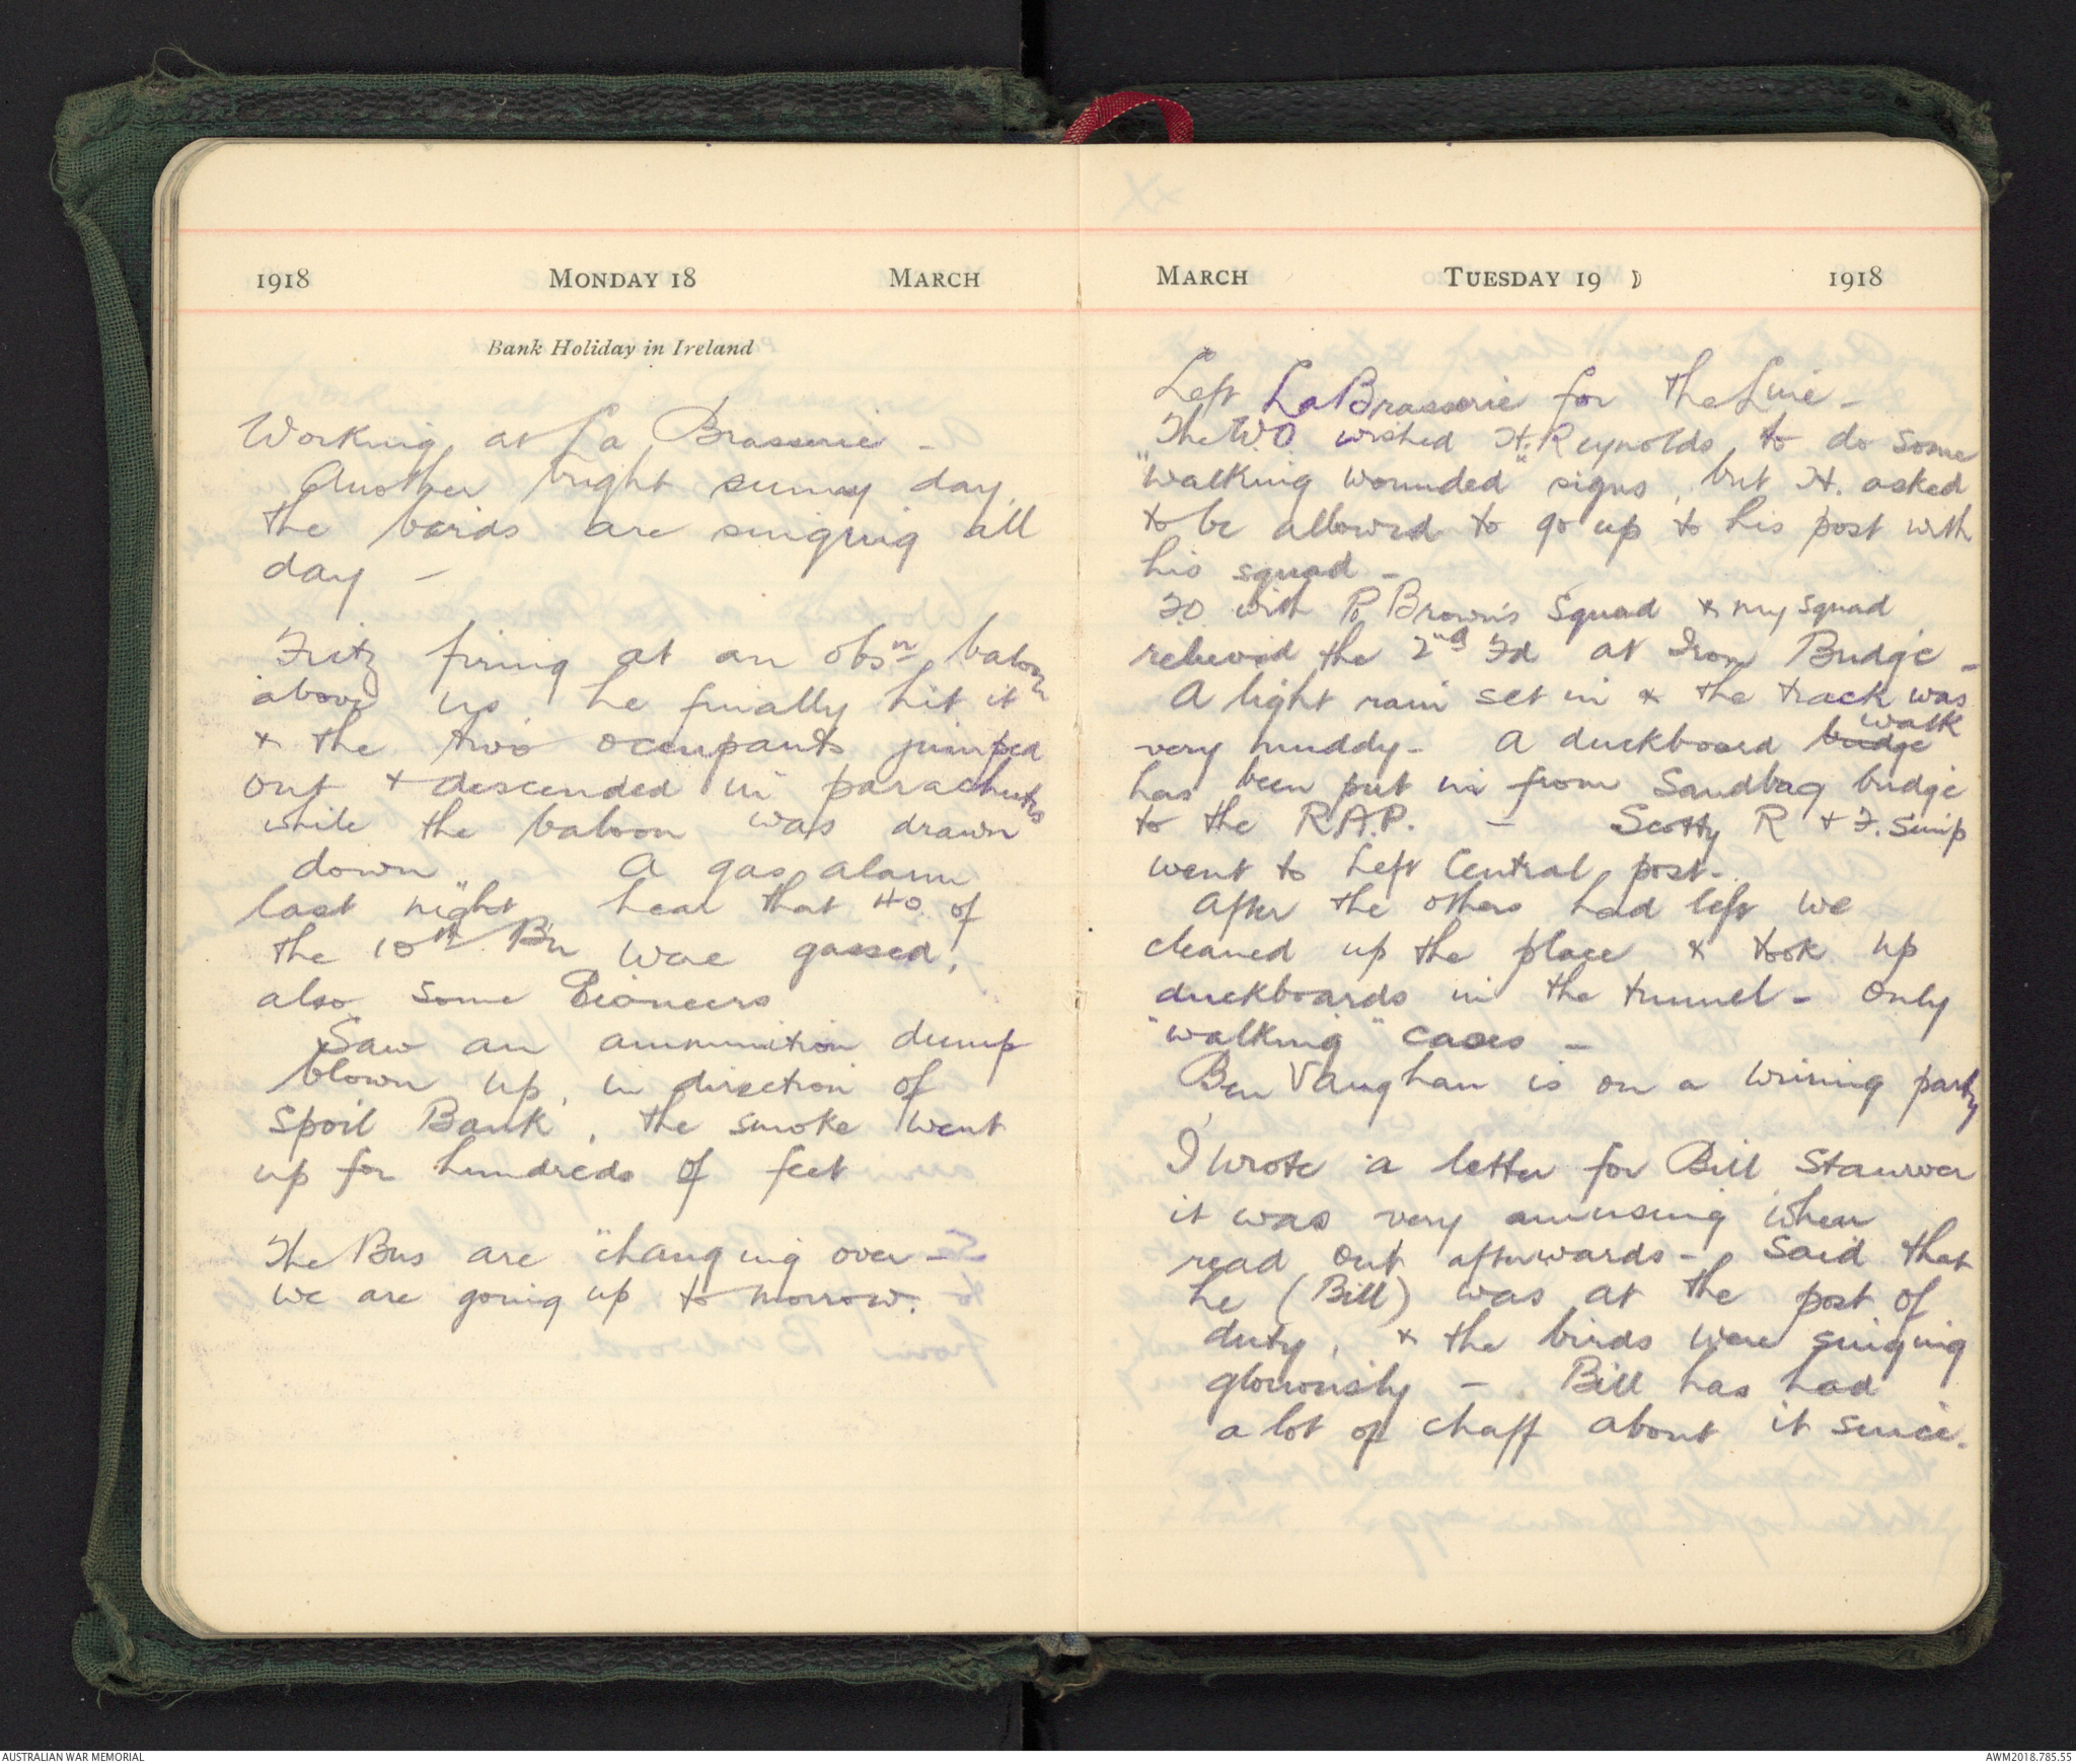 1918 MONDAY 18 MARCH
Bank Holiday in Ireland
Working at La Brasserie -
Another bright sunny day,
the birds are singing all
day -
Fritz firing at an obsn baloon
above us, he finally hit it
& the two occupants jumped
out & descended in parachutes
while the baloon was drawn
down A gas alarm
last night, hear that 40 of
the 10th Bn were gassed,
also some Pioneers
Saw an ammunition dump
blown up, in direction of
Spoil Bank, the smoke went
up for hundreds of feet
The Bns are changing over -
we are going up to morrow.
MARCH TUESDAY 19 1918
Left La Brasserie for the Line -
The WO wished H. Reynolds to do some
"walking wounded" signs, but H. asked
to be allowed to go up to his post with
his squad -
with Brown's Squad & my squad
relieved the 2nd Fd at Iron Bridge -
A light rain set in & the track was
walk
very muddy - A duckboard bridge
has been put in from Sandbag bridge
to the R.A.P. - Scotty R & F. Simp
went to Left Central post -
After the others had left we
cleaned up the place & took up
duckboards in the tunnel - Only
"walking" cases -
Ben Vaughan is on a wiring party
I wrote a letter for Bill
it was very amusing when
read out afterwards - Said that
he (Bill) was at the post of
duty, & the birds were singing
gloriously - Bill has had
a lot of chaff about it since.
AUSTRALIAN WAR MEMORIAL
AWM2018.785.55